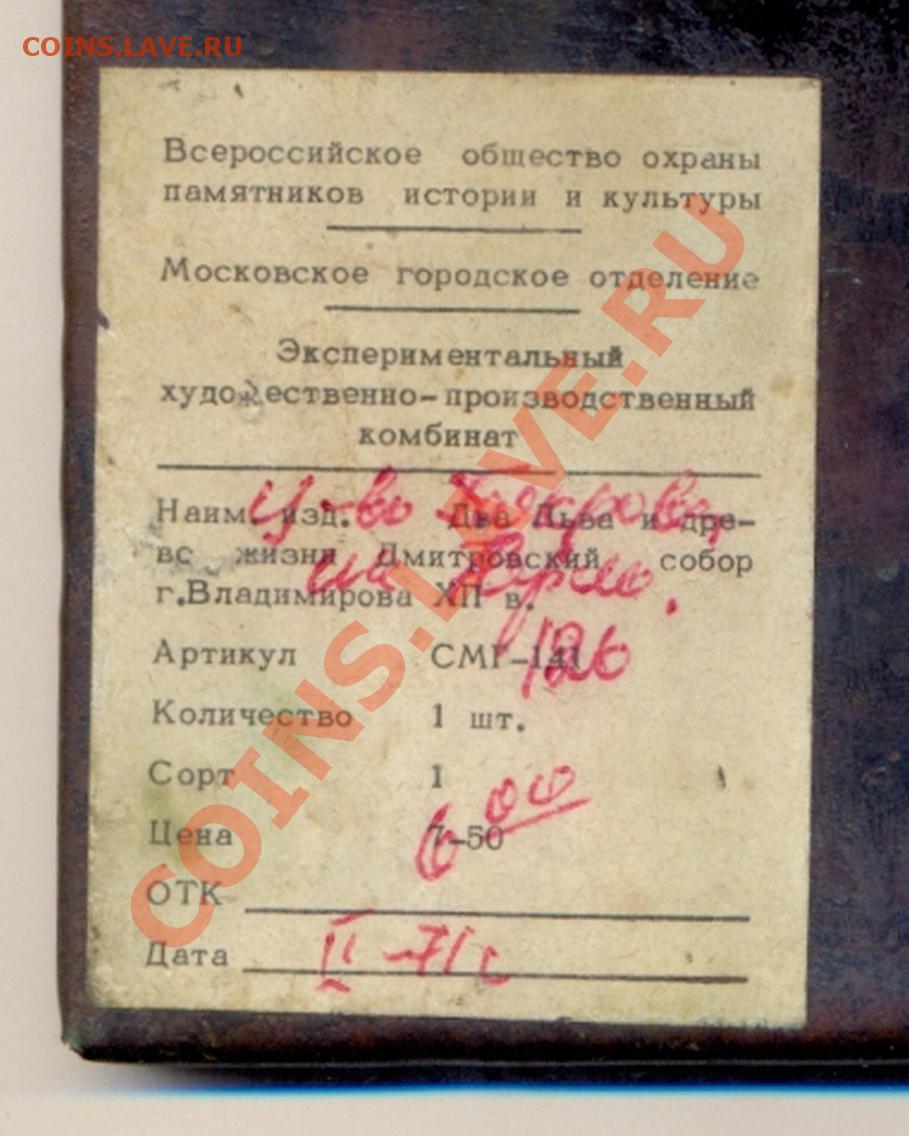 COINS.LAVE.RU
Всероссийское общество охраны
памятников истории и культуры
Московское городское отделение
Экспериментальный
художественно-производственный
комбинат
Наим. изд. Два Льва и дре-
вс жизни Дмитровский собор
г.Владимирова ХП в.
Артикул СМГ-141
126
Количество 1 шт.
Сорт 1
Цена 7-50
6 00
ОТК
Дата II-71г
COINS.LAVE.RU